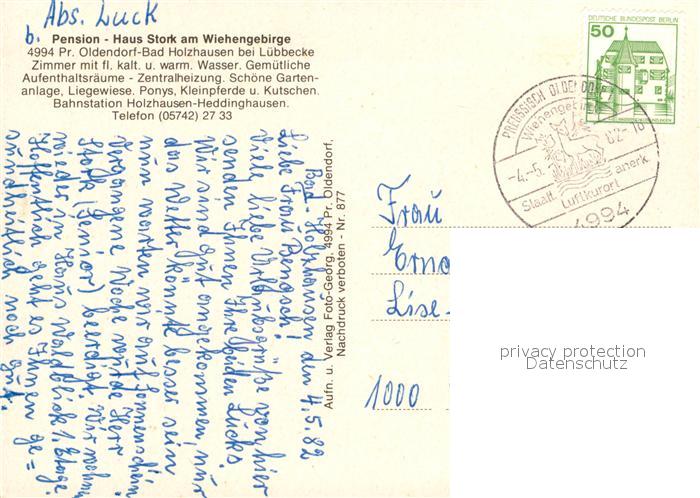 Abs. Luck
b. Pension - Haus Stork am Wiehengebirge
4994 Pr. Oldendorf-Bad Holzhausen bei Lübbecke
Zimmer mit fl. kalt. u. warm. Wasser. Gemütliche
Aufenthaltsräume - Zentralheizung. Schöne Garten-
anlage, Liegewiese. Ponys, Kleinpferde u. Kutschen.
Bahnstation Holzhausen-Heddinghausen.
Telefon (05742) 27 33
Bad Holzhausen, den 4.5.82
Liebe Frau
Viele liebe Urlaubsgrüße von hier
senden Ihnen Ihre beiden Lucks.
Wir sind gut angekommen, nur
das Wetter könnte besser sein
nur warten wir auf Sonnenschein
Vergangene Woche wurde Herr
Stork (Senior) beerdigt. Wir wohnen
wieder im Haus Waldblick 1. Etage.
Hoffentlich geht es Ihnen ge=
sundheitlich noch gut.
Aufn. u. Verlag Foto-Georg, 4994 Pr. Oldendorf,
Nachdruck verboten - Nr. 877
DEUTSCHE BUNDESPOST BERLIN
50
PREUSSISCH OLDENDORF
Wiehengebirge
-4.-5. 82-18
Staatl. anerk.
Luftkurort
4994
Frau
Erna
Lise-
1000
privacy protection
Datenschutz